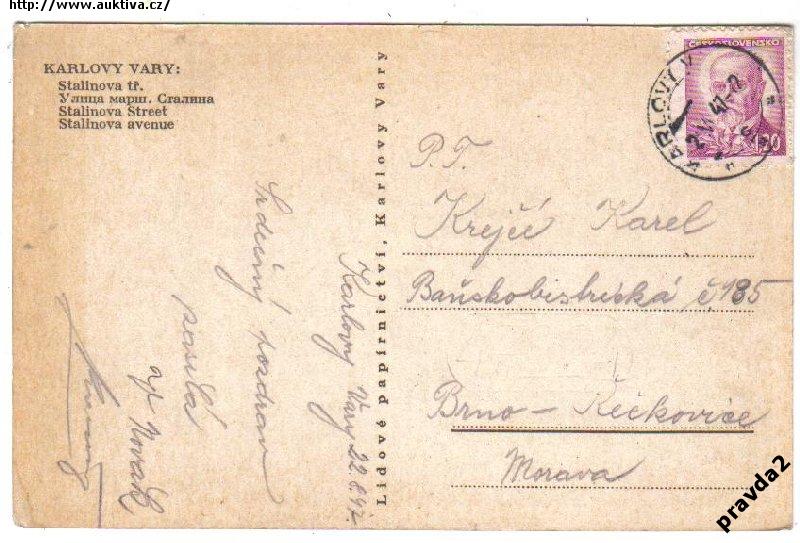 http://www.auktiva.cz/
KARLOVY VARY:
Stalinova tř.
Улица марш. Сталина
Stalinova Street
Stalinova avenue
Karlovy Vary 22.6.47.
Srdečný pozdrav
posílá
Novák
Lidové papírnictví, Karlovy Vary
ČESKOSLOVENSKO
1.20
KARLOVY V
P.T.
Krejčí Karel
Baňskobistrická č. 985
Brno - Řečkovice
Morava
pravda2